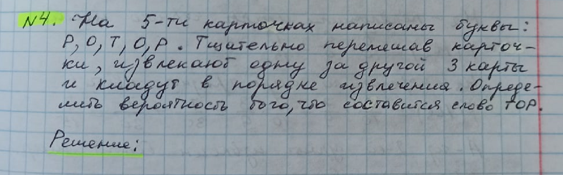 №4. На 5-ти карточках написаны буквы:
Р, О, Т, О, Р. Тщательно перемешав карточ-
ки, извлекают одну за другой 3 карты
и кладут в порядке извлечения. Опреде-
лить вероятность того, что составится слово ТОР.
Решение: